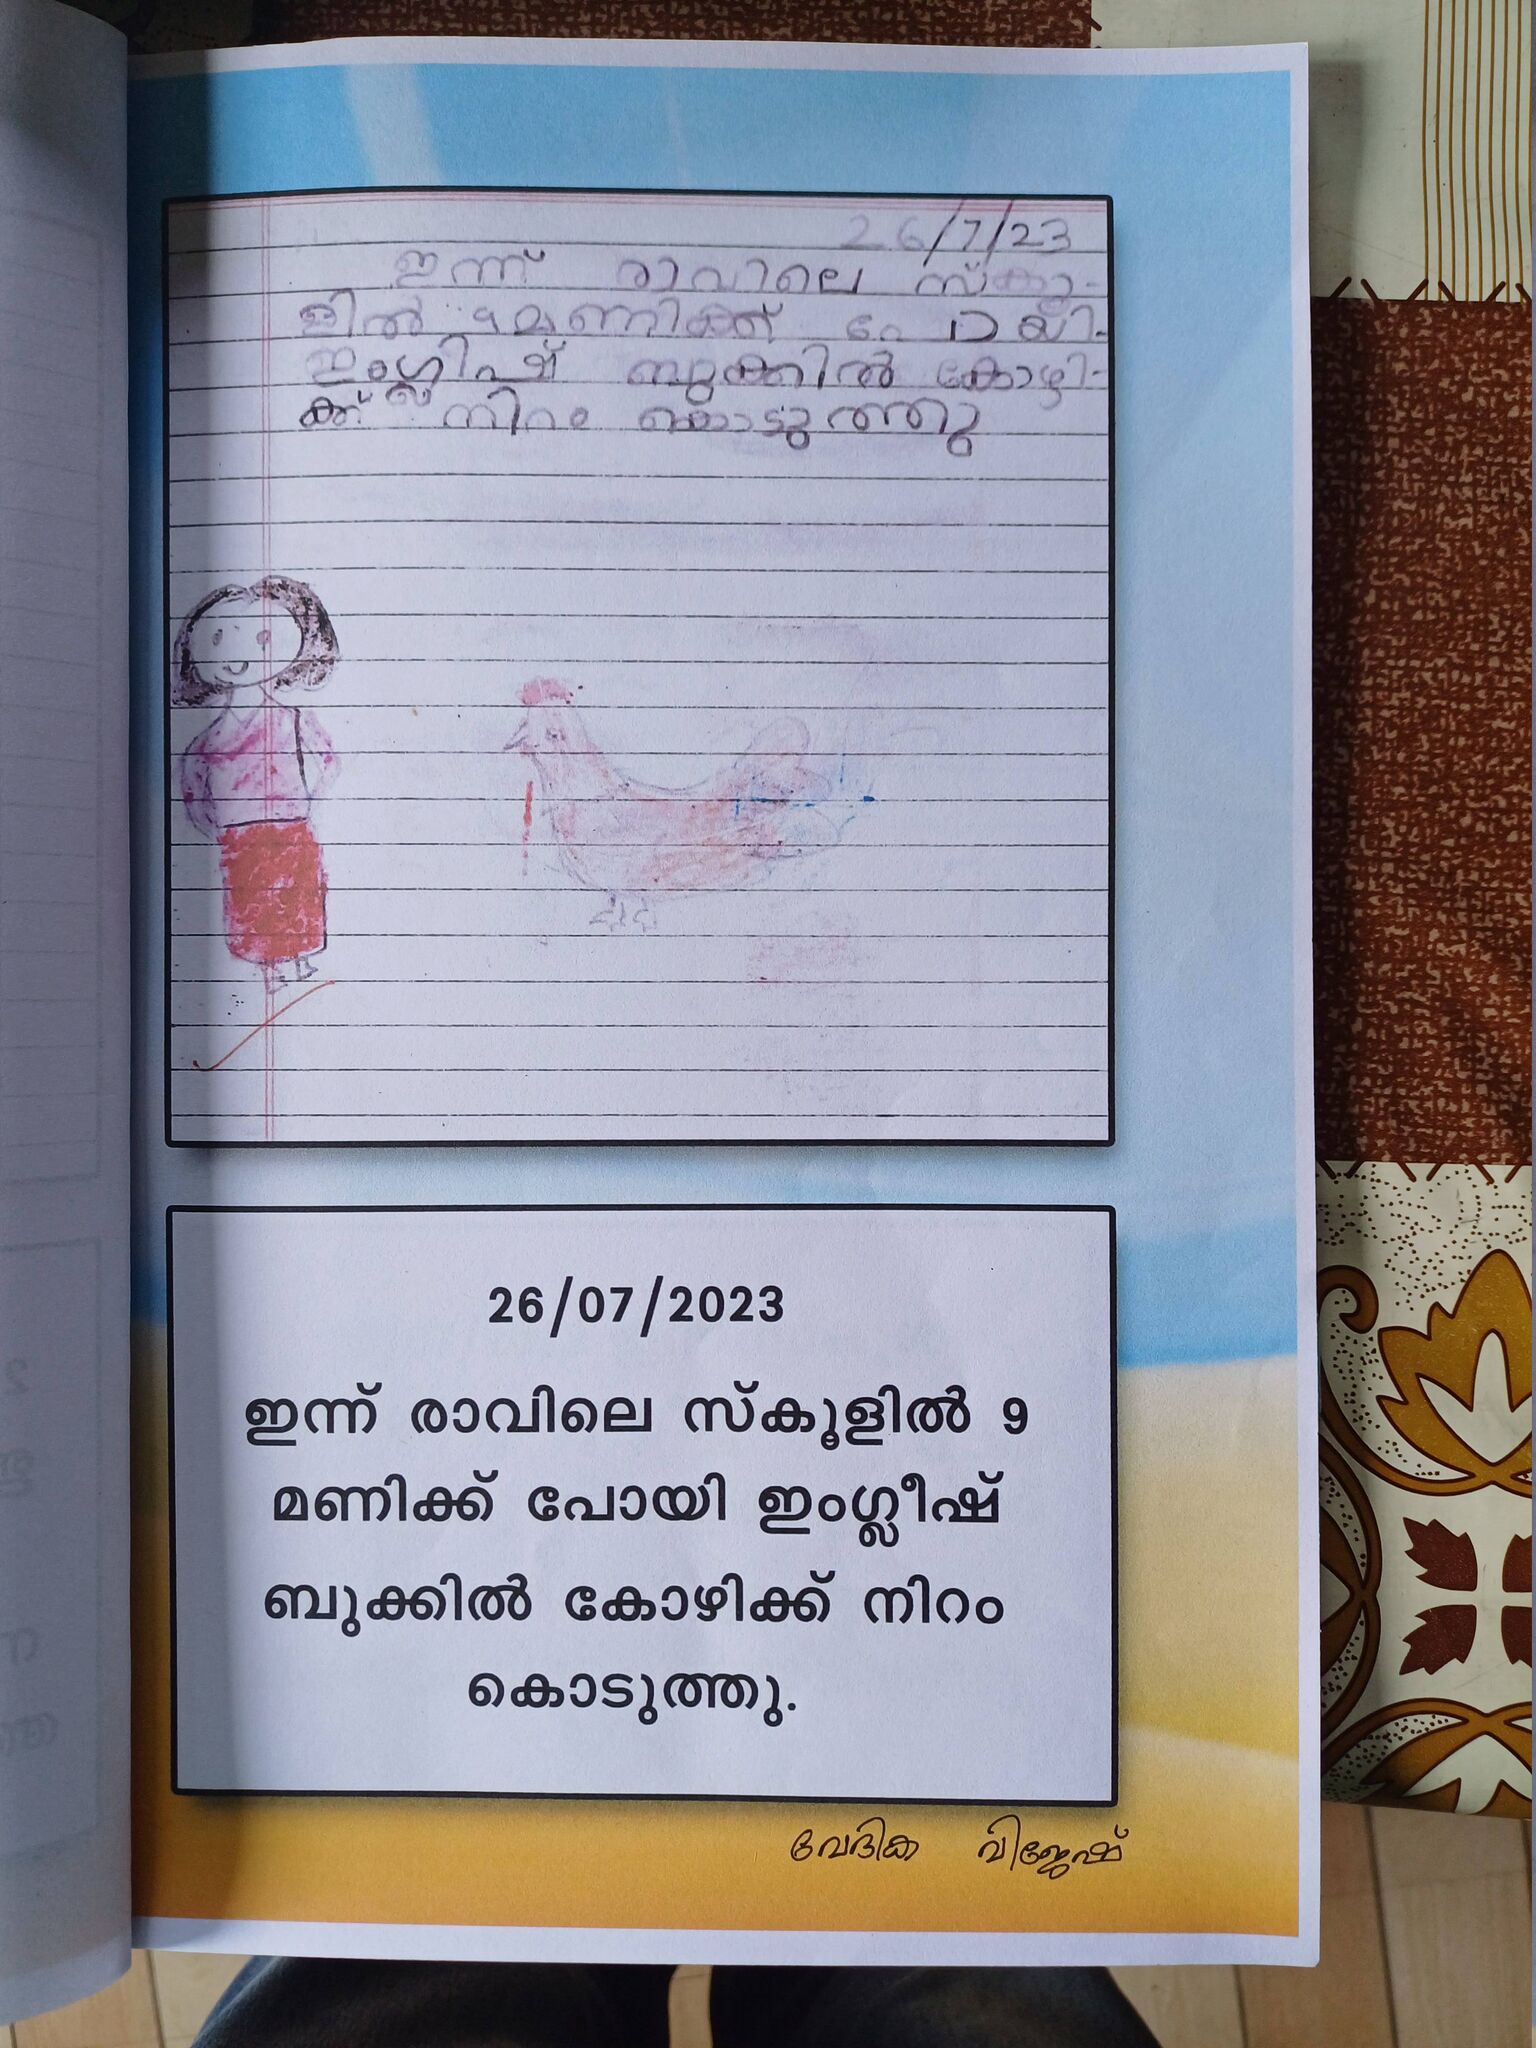 26/7/23
ഇന്ന് രാവിലെ സ്കൂ-
ളിൽ 9 മണിക്ക് പോയി-
ഇംഗ്ലിഷ് ബുക്കിൽ കോഴി-
ക്ക് നിറം കൊടുത്തു
26/07/2023
ഇന്ന് രാവിലെ സ്കൂളിൽ 9
മണിക്ക് പോയി ഇംഗ്ലീഷ്
ബുക്കിൽ കോഴിക്ക് നിറം
കൊടുത്തു.
വേദിക വിജേഷ്